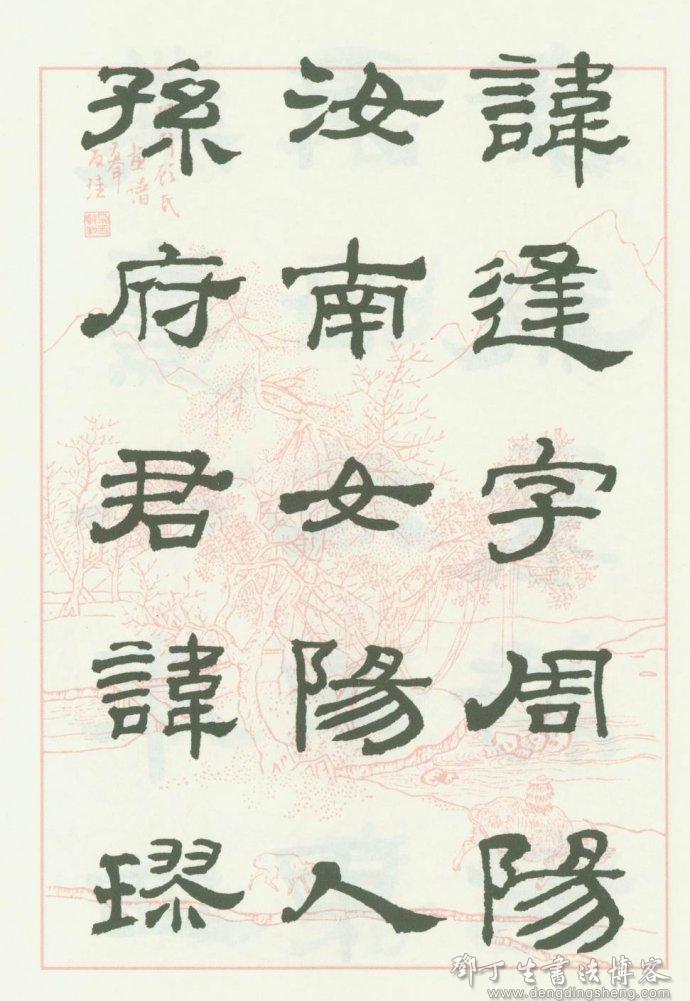 諱逢字周陽
汝南女陽人
孫府君諱璆
鄧丁生書法博客
www.dengdingsheng.com